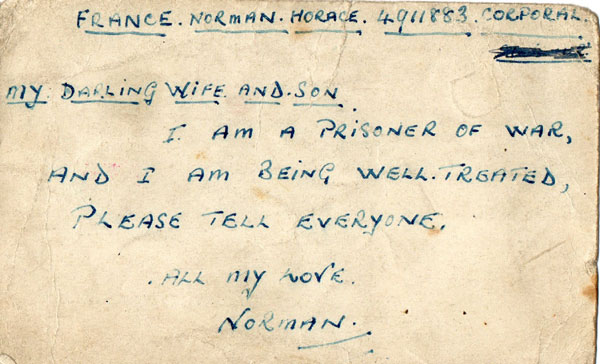 FRANCE. NORMAN. HORACE. 4911883. CORPORAL.
MY DARLING WIFE AND. SON
I AM A PRISONER OF WAR,
AND I AM BEING WELL. TREATED,
PLEASE TELL EVERYONE.
ALL MY LOVE.
NORMAN.